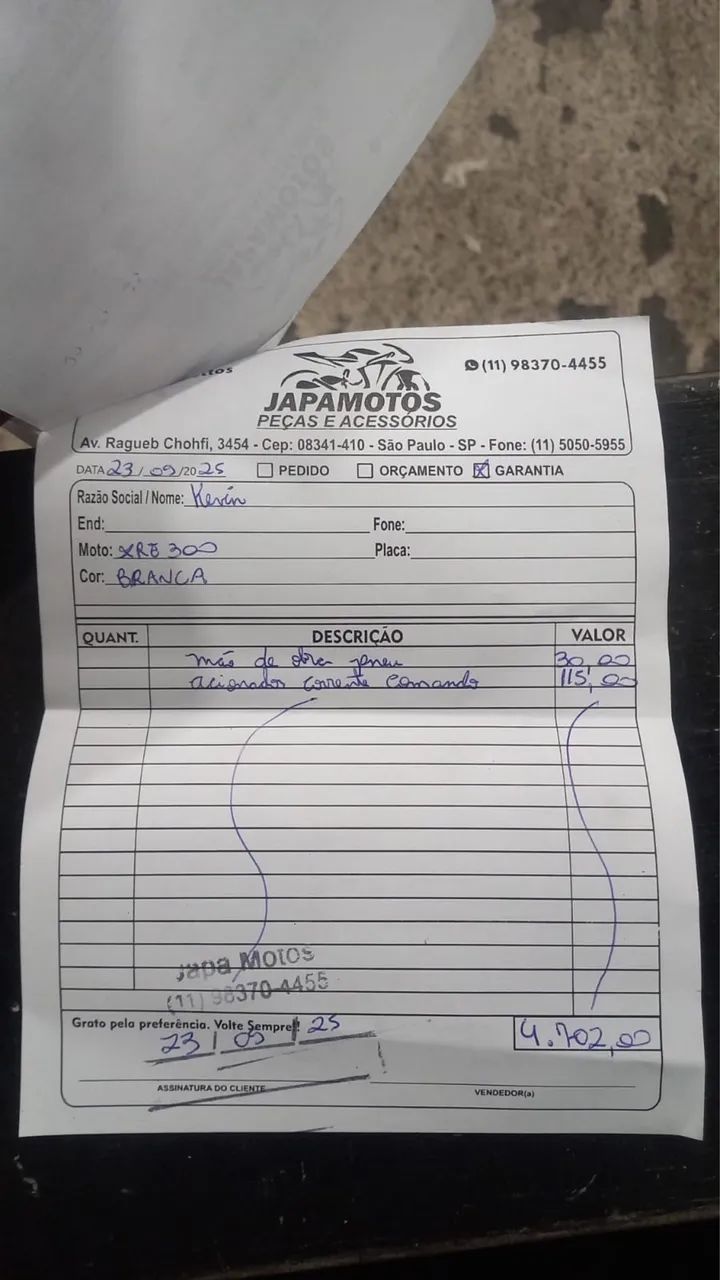 (11) 98370-4455
JAPAMOTOS
PEÇAS E ACESSÓRIOS
Av. Ragueb Chohfi, 3454 - Cep: 08341-410 - São Paulo - SP - Fone: (11) 5050-5955
DATA 23/09/2025 PEDIDO ORÇAMENTO X GARANTIA
Razão Social / Nome: Kevin
End: Fone:
Moto: XRE 300 Placa:
Cor: BRANCA
QUANT. DESCRIÇÃO VALOR
mão de obra pneu 30,00
acionador corrente comando 115,00
Japa Motos
(11) 98370-4455
Grato pela preferência. Volte Sempre!
23/09/25
4.702,00
ASSINATURA DO CLIENTE VENDEDOR(a)